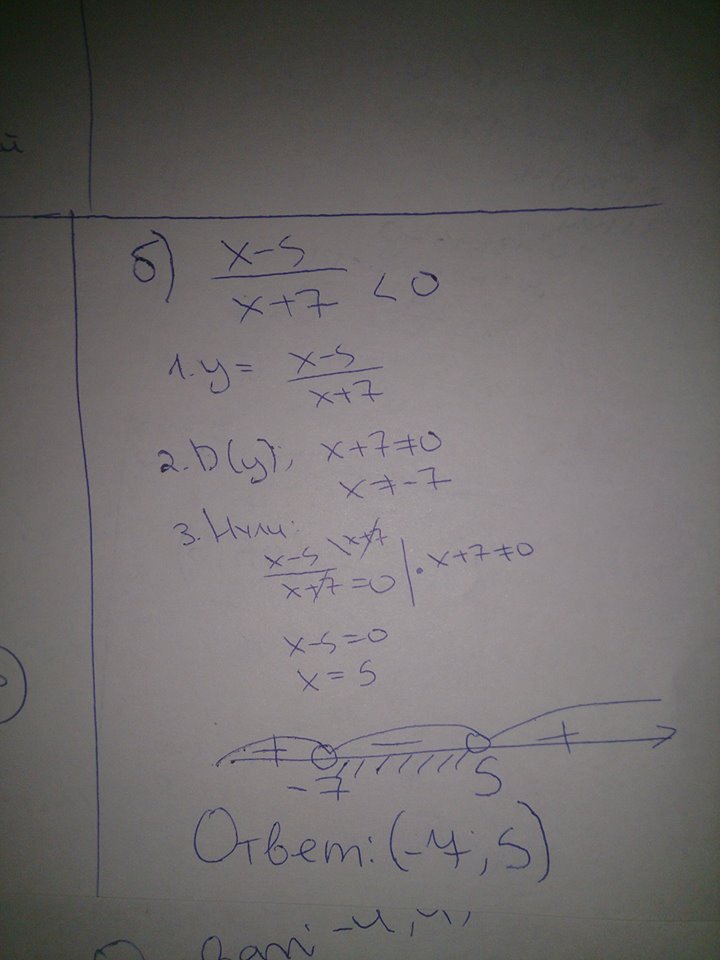 й
б) x-5/x+7 < 0
1. y = x-5/x+7
2. D(y); x+7≠0
x≠-7
3. Нули:
x-5\x+7/x+7 = 0 | · x+7≠0
x-5=0
x = 5
+ - +
-7 5
Ответ: (-7; 5)